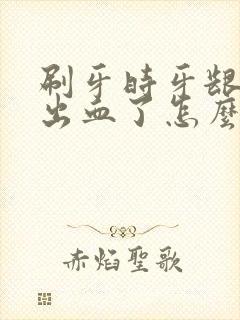 刷牙時牙齦
出血了怎麼
赤焰聖歌